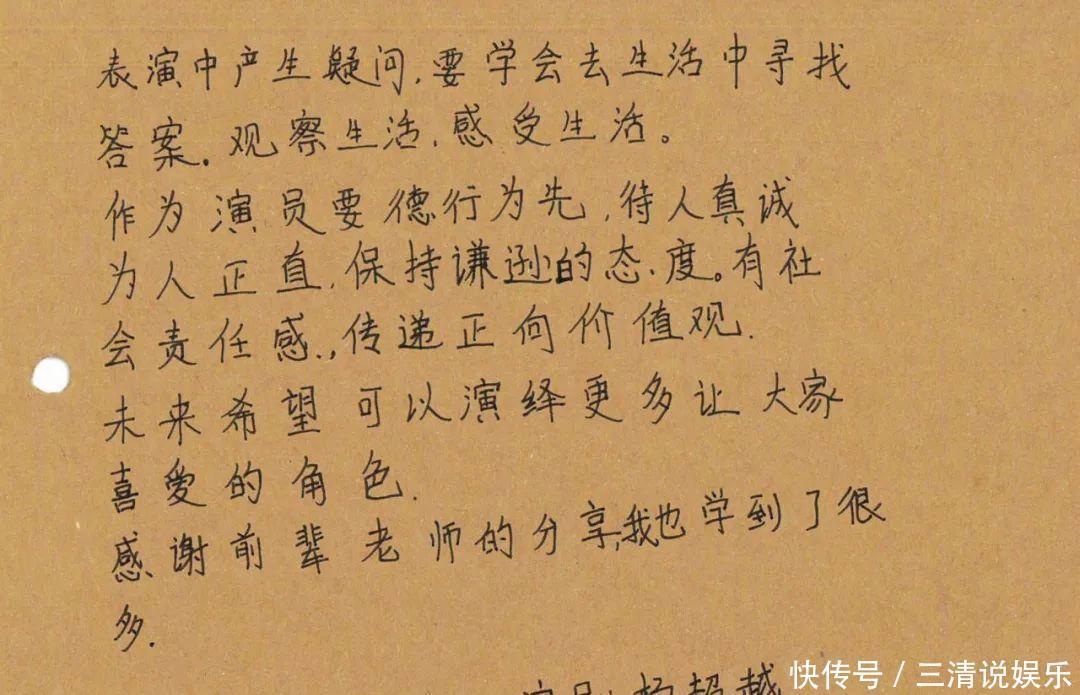 表演中产生疑问,要学会去生活中寻找
答案.观察生活,感受生活。
作为演员要德行为先,待人真诚
为人正直,保持谦逊的态度。有社
会责任感.,传递正向价值观.
未来希望可以演绎更多让大家
喜爱的角色.
感谢前辈老师的分享,我也学到了很
多.
演员:杨超越
快传号/三清说娱乐